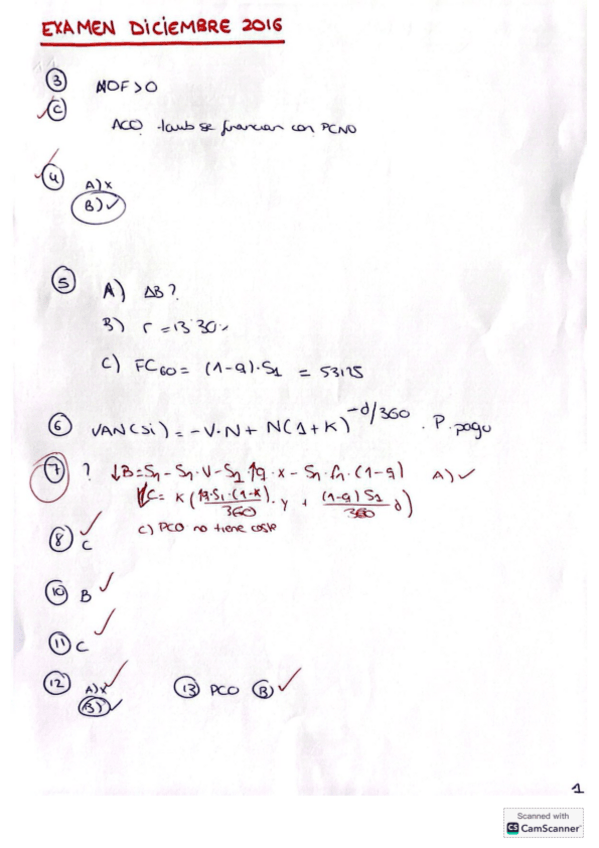 EXAMEN DICIEMBRE 2016
③ NOF>0
Ⓒ
ACO tamb se financian con PCNO
④ A)x
B)✓
⑤ A) ΔB?
B) r = 13'30%
C) FC60 = (1-q)·S1 = 53125
⑥ VAN(si) = -V·N + N(1+K)^-d/360 · P. pago
⑦ ? ↓B = S1 - S1·V - S1 ↑q·x - S1·f1·(1-q) A)✓
C = K( ↑q·S1·(1-x)/360 · y + (1-q) S1/360 d)
c) PCO no tiene coste
⑧ C ✓
⑩ B ✓
⑪ C ✓
⑫ A)x ⑬ PCO Ⓑ ✓
B)✓
1
Scanned with
CS CamScanner